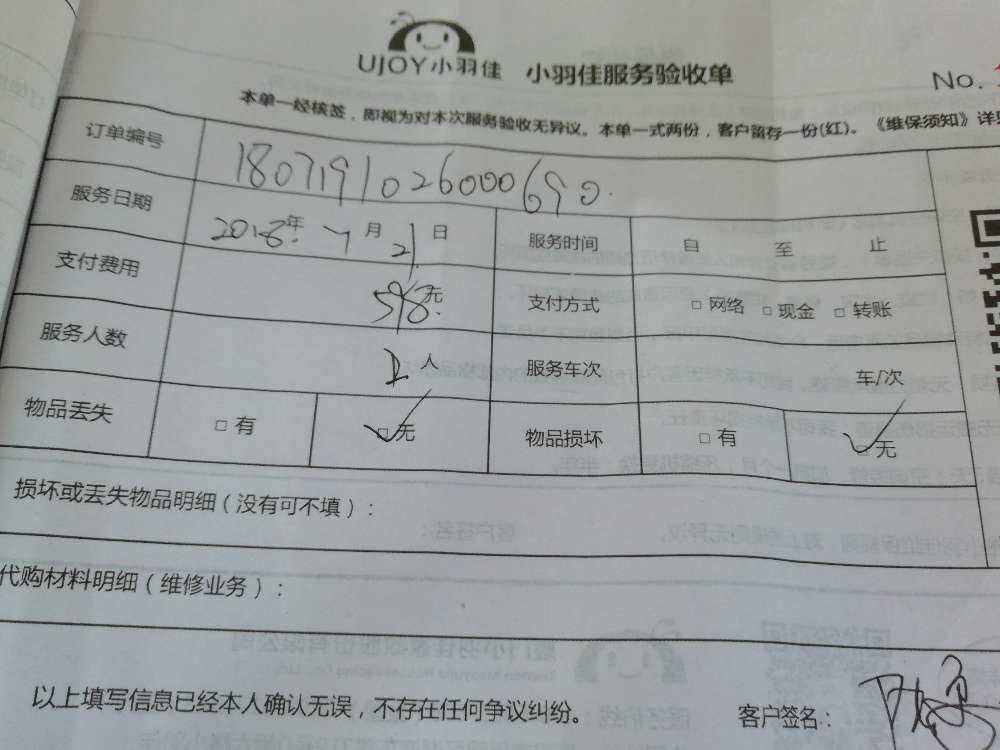 UJOY小羽佳 小羽佳服务验收单
No.
本单一经核签，即视为对本次服务验收无异议。本单一式两份，客户留存一份(红)。《维保须知》详见
订单编号 1807191026000690
服务日期 2018年 7月 21日 服务时间 自 至 止
支付费用 598元 支付方式 □网络 □现金 □转账
服务人数 2人 服务车次 车/次
物品丢失 □有 ☑无 物品损坏 □有 ☑无
损坏或丢失物品明细（没有可不填）：
代购材料明细（维修业务）：
以上填写信息已经本人确认无误，不存在任何争议纠纷。 客户签名：